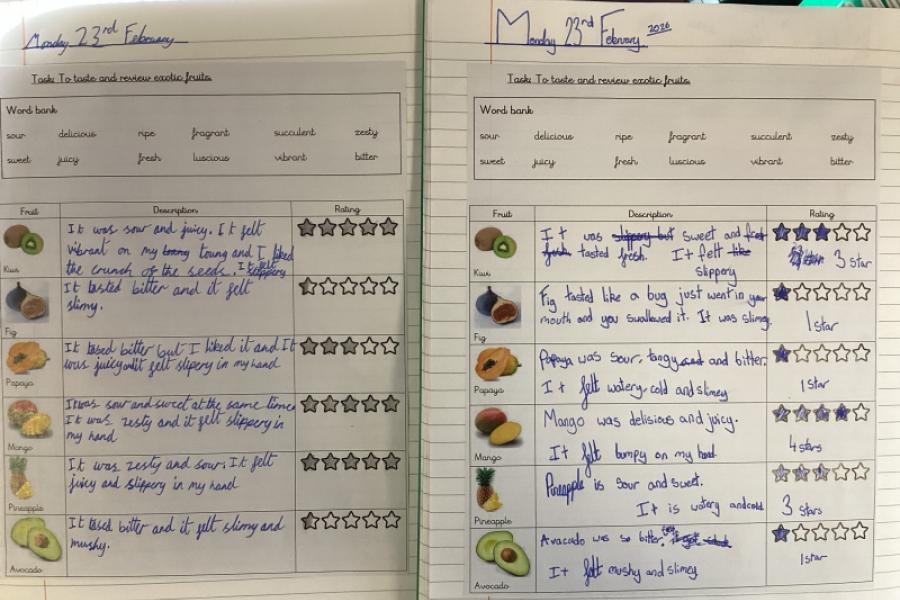 Monday 23rd February
Task: To taste and review exotic fruits.
Word bank
sour delicious ripe fragrant succulent zesty
sweet juicy fresh luscious vibrant bitter
Fruit Description Rating
It was sour and juicy. It felt
vibrant on my toung and I liked
the crunch of the seeds. It felt
slippery
Kiwi
It tasted bitter and it felt
slimy.
Fig
It tased bitter but I liked it and It
was juicy and it felt slipery in my hand
Papaya
It was sour and sweet at the same time
It was zesty and it felt slippery in
my hand
Mango
It was zesty and sour. It felt
juicy and slippery in my hand
Pineapple
It tased bitter and it felt slimy and
mushy.
Avocado
Monday 23rd February 2026
Task: To taste and review exotic fruits.
Word bank
sour delicious ripe fragrant succulent zesty
sweet juicy fresh luscious vibrant bitter
Fruit Description Rating
It was slippery but sweet and
tasted fresh. It felt like
slippery
3 star
Kiwi
Fig tasted like a bug just went in your
mouth and you swallowed it. It was slimey.
1 star
Fig
Papaya was sour, tangy and and bitter.
It felt watery cold and slimey
1 star
Papaya
Mango was delisious and juicy.
It felt bumpy on my hand
4 stars
Mango
Pineapple is sour and sweet.
It is watery and cold
3 stars
Pineapple
Avacado was so bitter
It felt mushy and slimey
1 star
Avocado